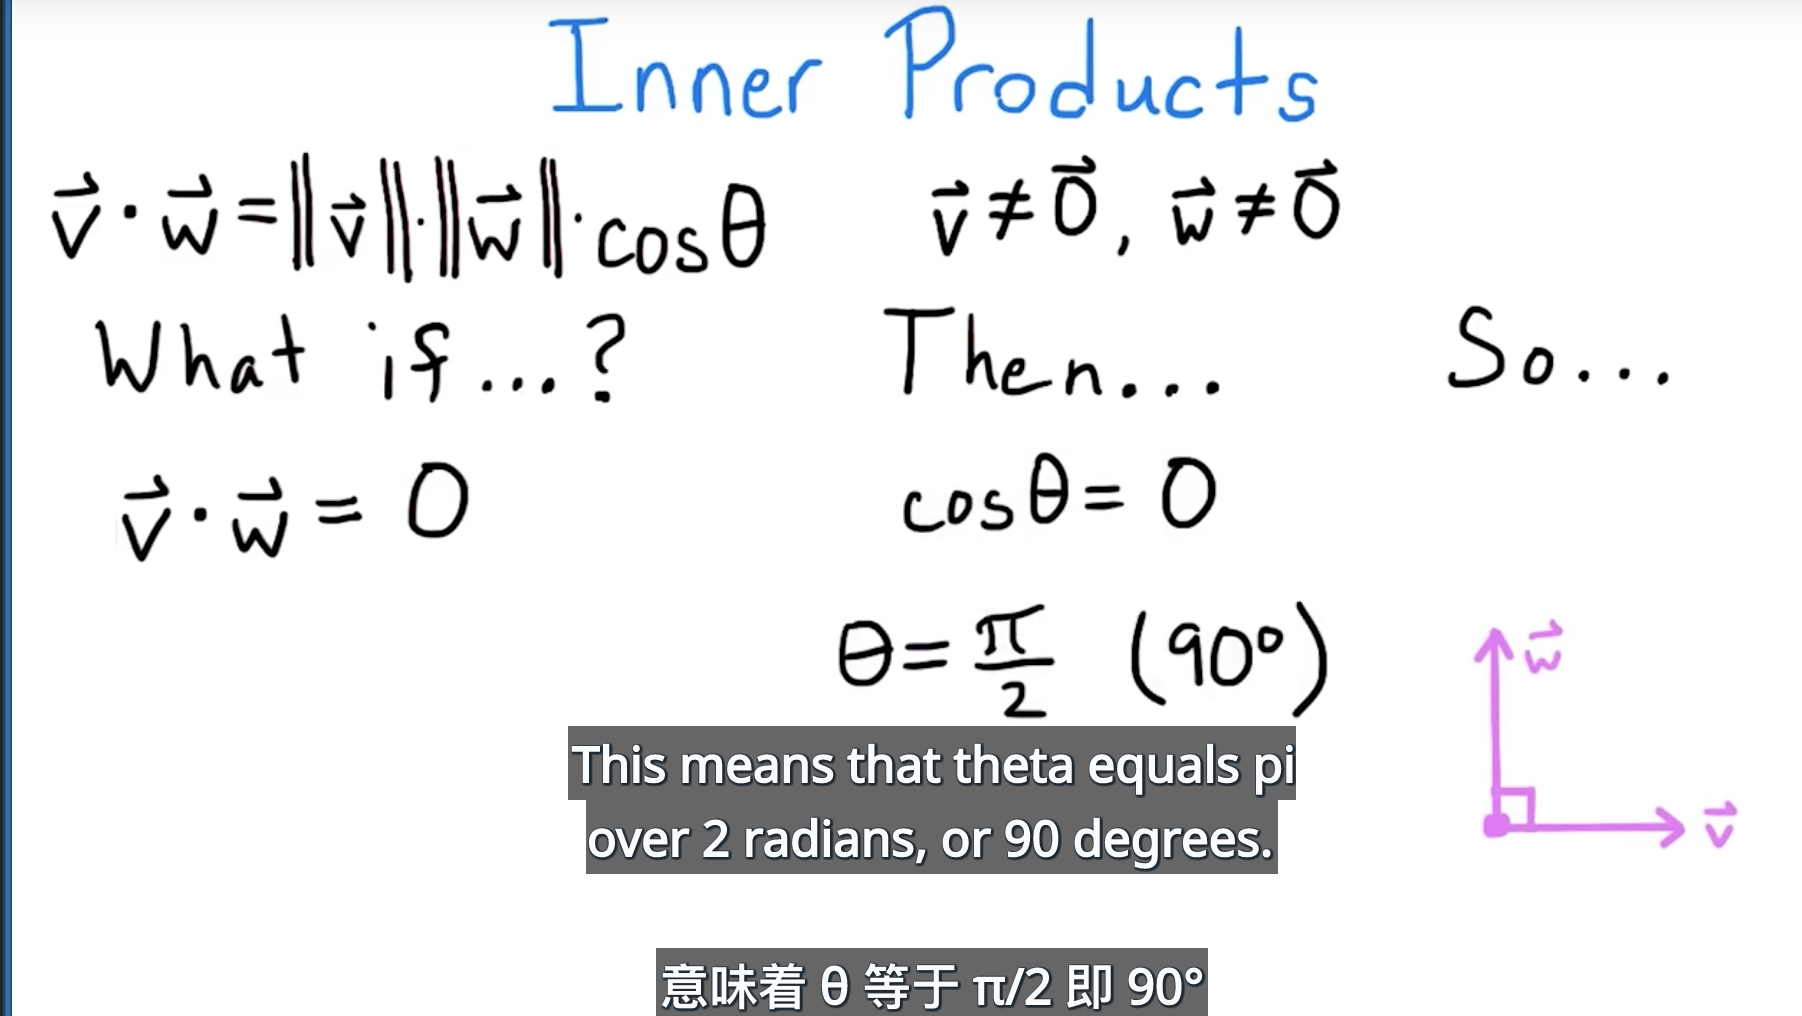 Inner Products
v⃗ · w⃗ = ‖v⃗‖·‖w⃗‖·cosθ v⃗ ≠ 0⃗, w⃗ ≠ 0⃗
What if...? Then... So...
v⃗ · w⃗ = 0 cosθ = 0
θ = π/2 (90°)
w⃗
This means that theta equals pi
over 2 radians, or 90 degrees.
v⃗
意味着 θ 等于 π/2 即 90°